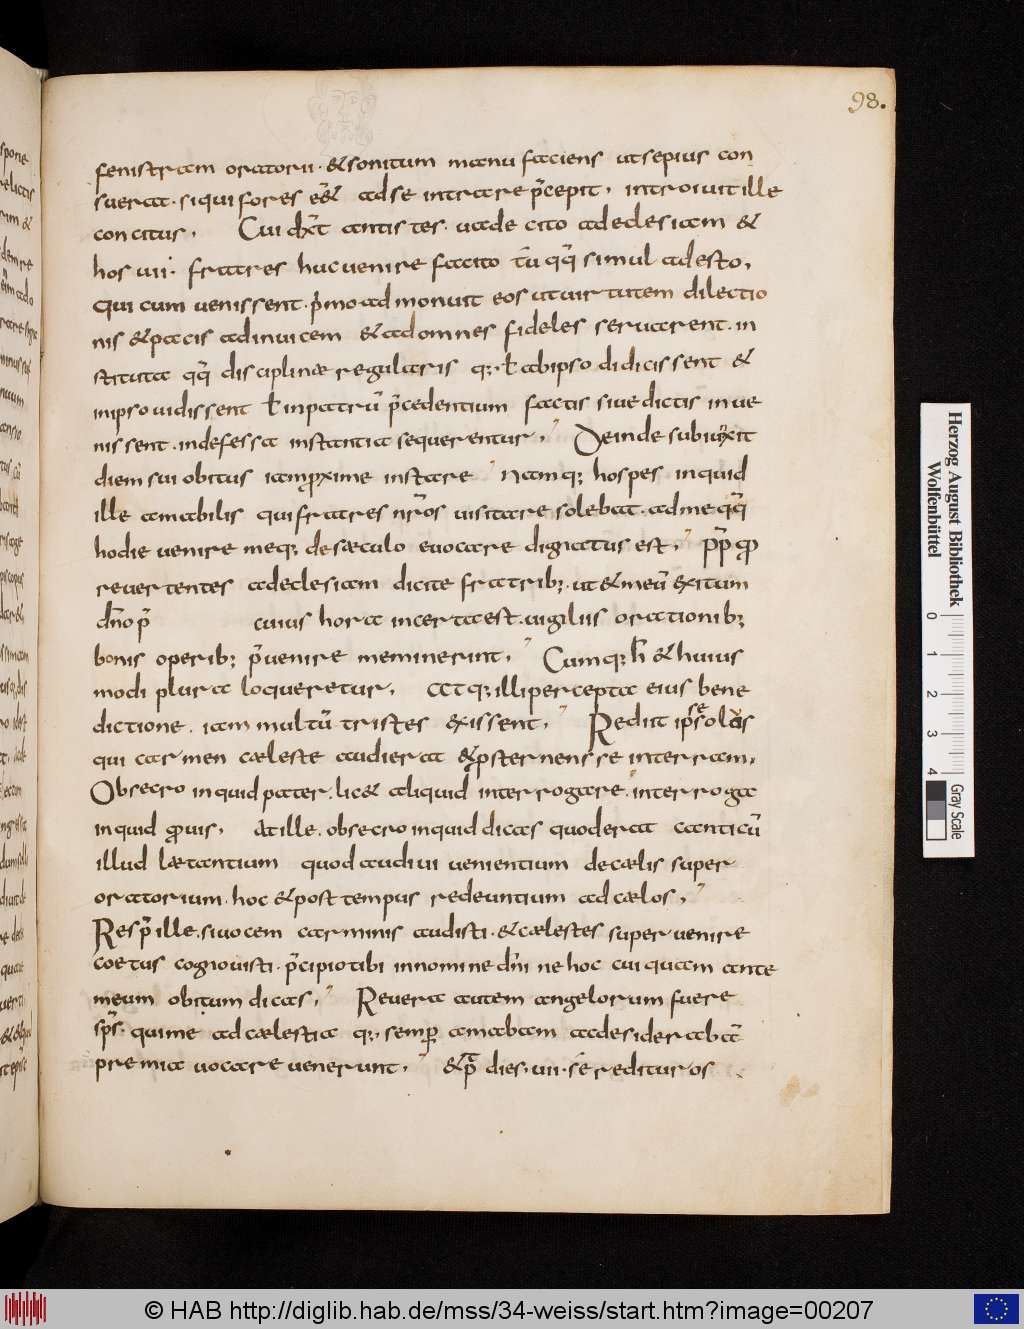 98.
fenistram oratorii · & sonitum manu faciens ut sepius con
suerat · si qui fores eēt ad se intrare p̄cepit, introiuit ille
concitus, Cui dix̄ antistes · uade cito ad eclesiam &
hos uii · fratres huc uenire facito tū qq̄ simul adesto,
Qui cum uenissent · p̄mo admonuit eos ut uirtutem dilectio
nis & pacis ad inuicem & ad omnes fideles seruarent · in
stituta qq̄ disciplinæ regularis q; · ł ab ipso didicissent &
in ipso uidissent ł in patrū p̄cedentium factis siue dictis inue
nissent · indefessa instantia sequerentur, Deinde subiunxit
diem sui obitus iam proxime instare Namq; hospes inquid
ille amabilis qui fratres nr̄os uisitare solebat · ad me qq̄
hodie uenire meq; de sæculo euocare dignatus est, pp̄ qđ
reuertentes ad eclesiam dicite fratrib; · ut & meū exitum
dn̄o p̄ cuius hora incerta est · uigiliis orationib;
bonis operib; p̄uenire meminerint, Cumq; h̄ & huius
modi plura loqueretur, Atq; illi percepta eius bene
dictione · iam multū tristes exissent, Rediit ipse solus
qui carmen cæleste audierat & psternens se in terram,
Obsecro inquid pater · lic& aliquid interrogare · interroga
inquid quis, At ille · obsecro inquid dicas quod erat canticū
illud lætantium quod audiui uenientium de cælis super
oratorium · hoc & post tempus redeuntium ad cælos,
Resp̄ ille · si uocem carminis audisti · & cælestes superuenire
coetus cognouisti · p̄cipio tibi in nomine dn̄i ne hoc cuiquam ante
meum obitum dicas, Reuera autem angelorum fuere
sp̄s · qui me ad cælestia q; · semp amabam ac desiderabā
premia uocare uenerunt, & p̄ dies · uii · se redituros
Herzog August Bibliothek
Wolfenbüttel
0 1 2 3 4
Gray Scale
© HAB http://diglib.hab.de/mss/34-weiss/start.htm?image=00207